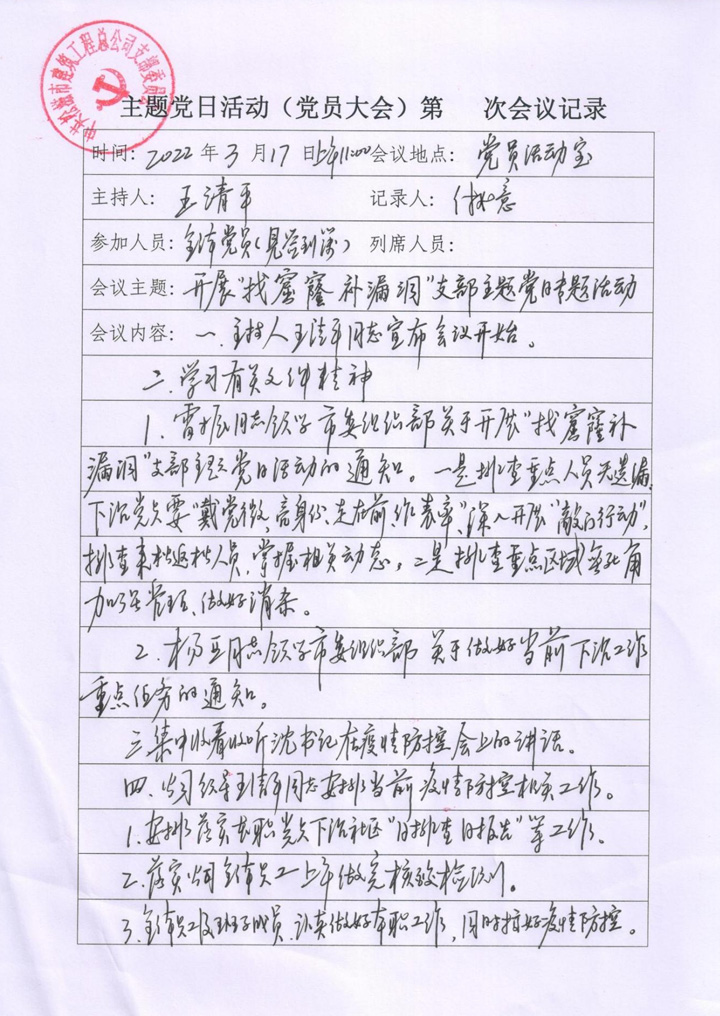 中共松滋市建筑工程总公司支部委员会
主题党日活动（党员大会）第 次会议记录
时间：2022年3月17日上午11:00 会议地点：党员活动室
主持人：王清平 记录人：付如意
参加人员：全体党员（见签到簿） 列席人员：
会议主题：开展“找窟窿补漏洞”支部主题党日专题活动
会议内容：一、主持人王清平同志宣布会议开始。
二、学习有关文件精神
1、雷振同志领学市委组织部关于开展“找窟窿补
漏洞”支部主题党日活动的通知。一是排查重点人员无遗漏，
下沉党员要“戴党徽，亮身份，走在前，作表率”，深入开展“敲门行动”，
排查来松返松人员，掌握相关动态，二是排查重点区域无死角
加强管理、做好消杀。
2、杨亚同志领学市委组织部关于做好当前下沉工作
重点任务的通知。
三、集中收看收听沈书记在疫情防控会上的讲话。
四、公司经理王清平同志安排当前疫情防控相关工作。
1、安排落实在职党员下沉社区“日排查日报告”等工作。
2、落实公司全体员工上午做完核酸检测。
3、全体员工及班子成员，认真做好本职工作，同时搞好疫情防控。